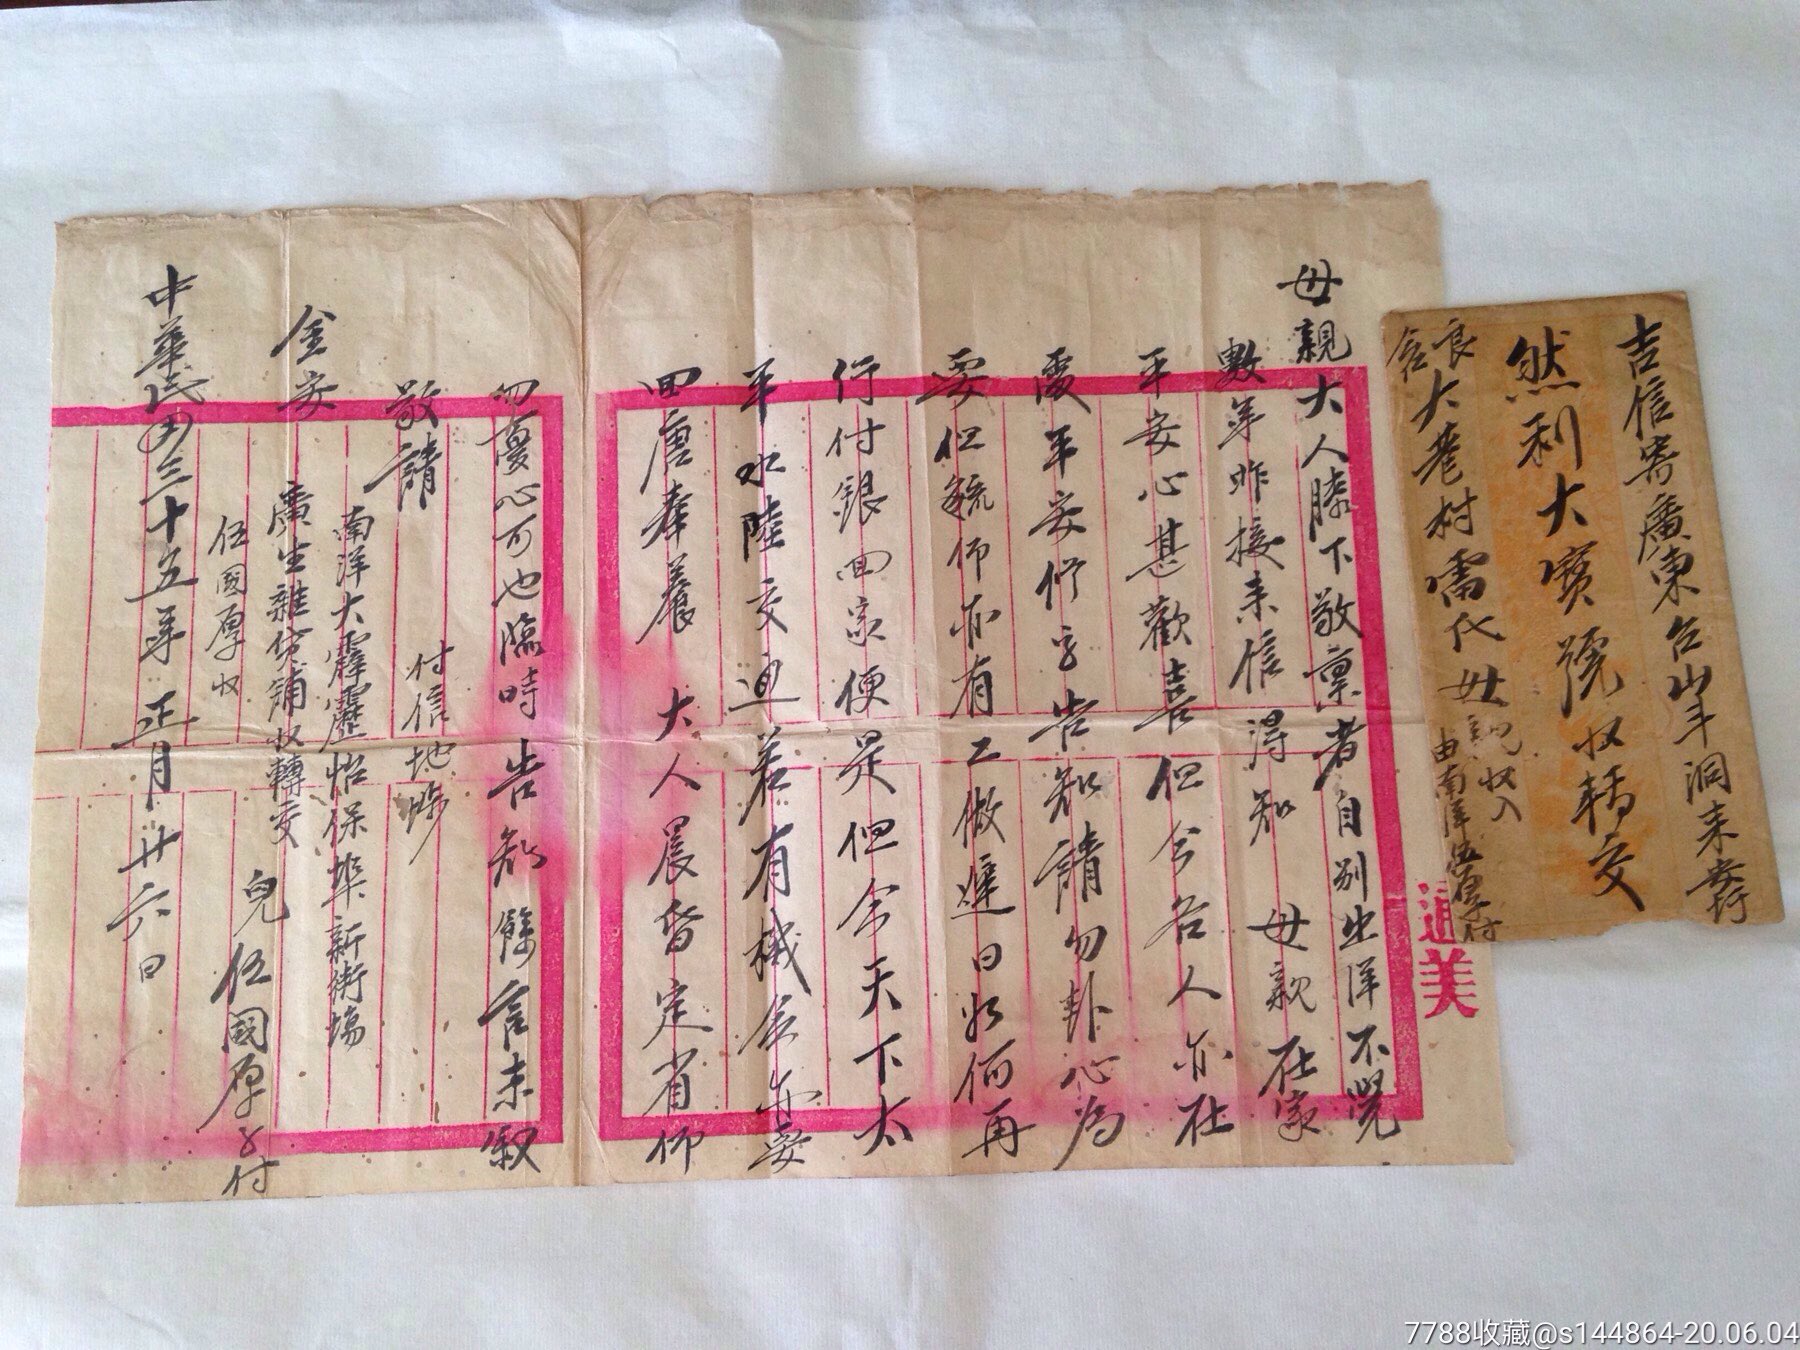 吉信寄廣東台山斗洞末安行
然利大寶號收轉交
良
大巷村雷氏母親收入
由南洋伍國厚付
通美
母親大人膝下敬禀者自別出洋不覺
數年昨接來信得知 母親在家
平安心甚歡喜但今各人亦在
處平安付字告知請勿卦心為
要但毓仰亦有工做遲日如何再
行付銀回家便是但今天下太
平水陸交通若有機會亦要
回唐奉養 大人晨昏定省仰
勿憂心可也臨時告知餘言未叙
敬請
金安
付信地址
南洋大霹靂怡保埠新街場
廣生雜貨鋪收轉交
伍國厚收
兒伍國厚字付
中華民國三十五年正月廿六日
7788收藏@s144864-20.06.04